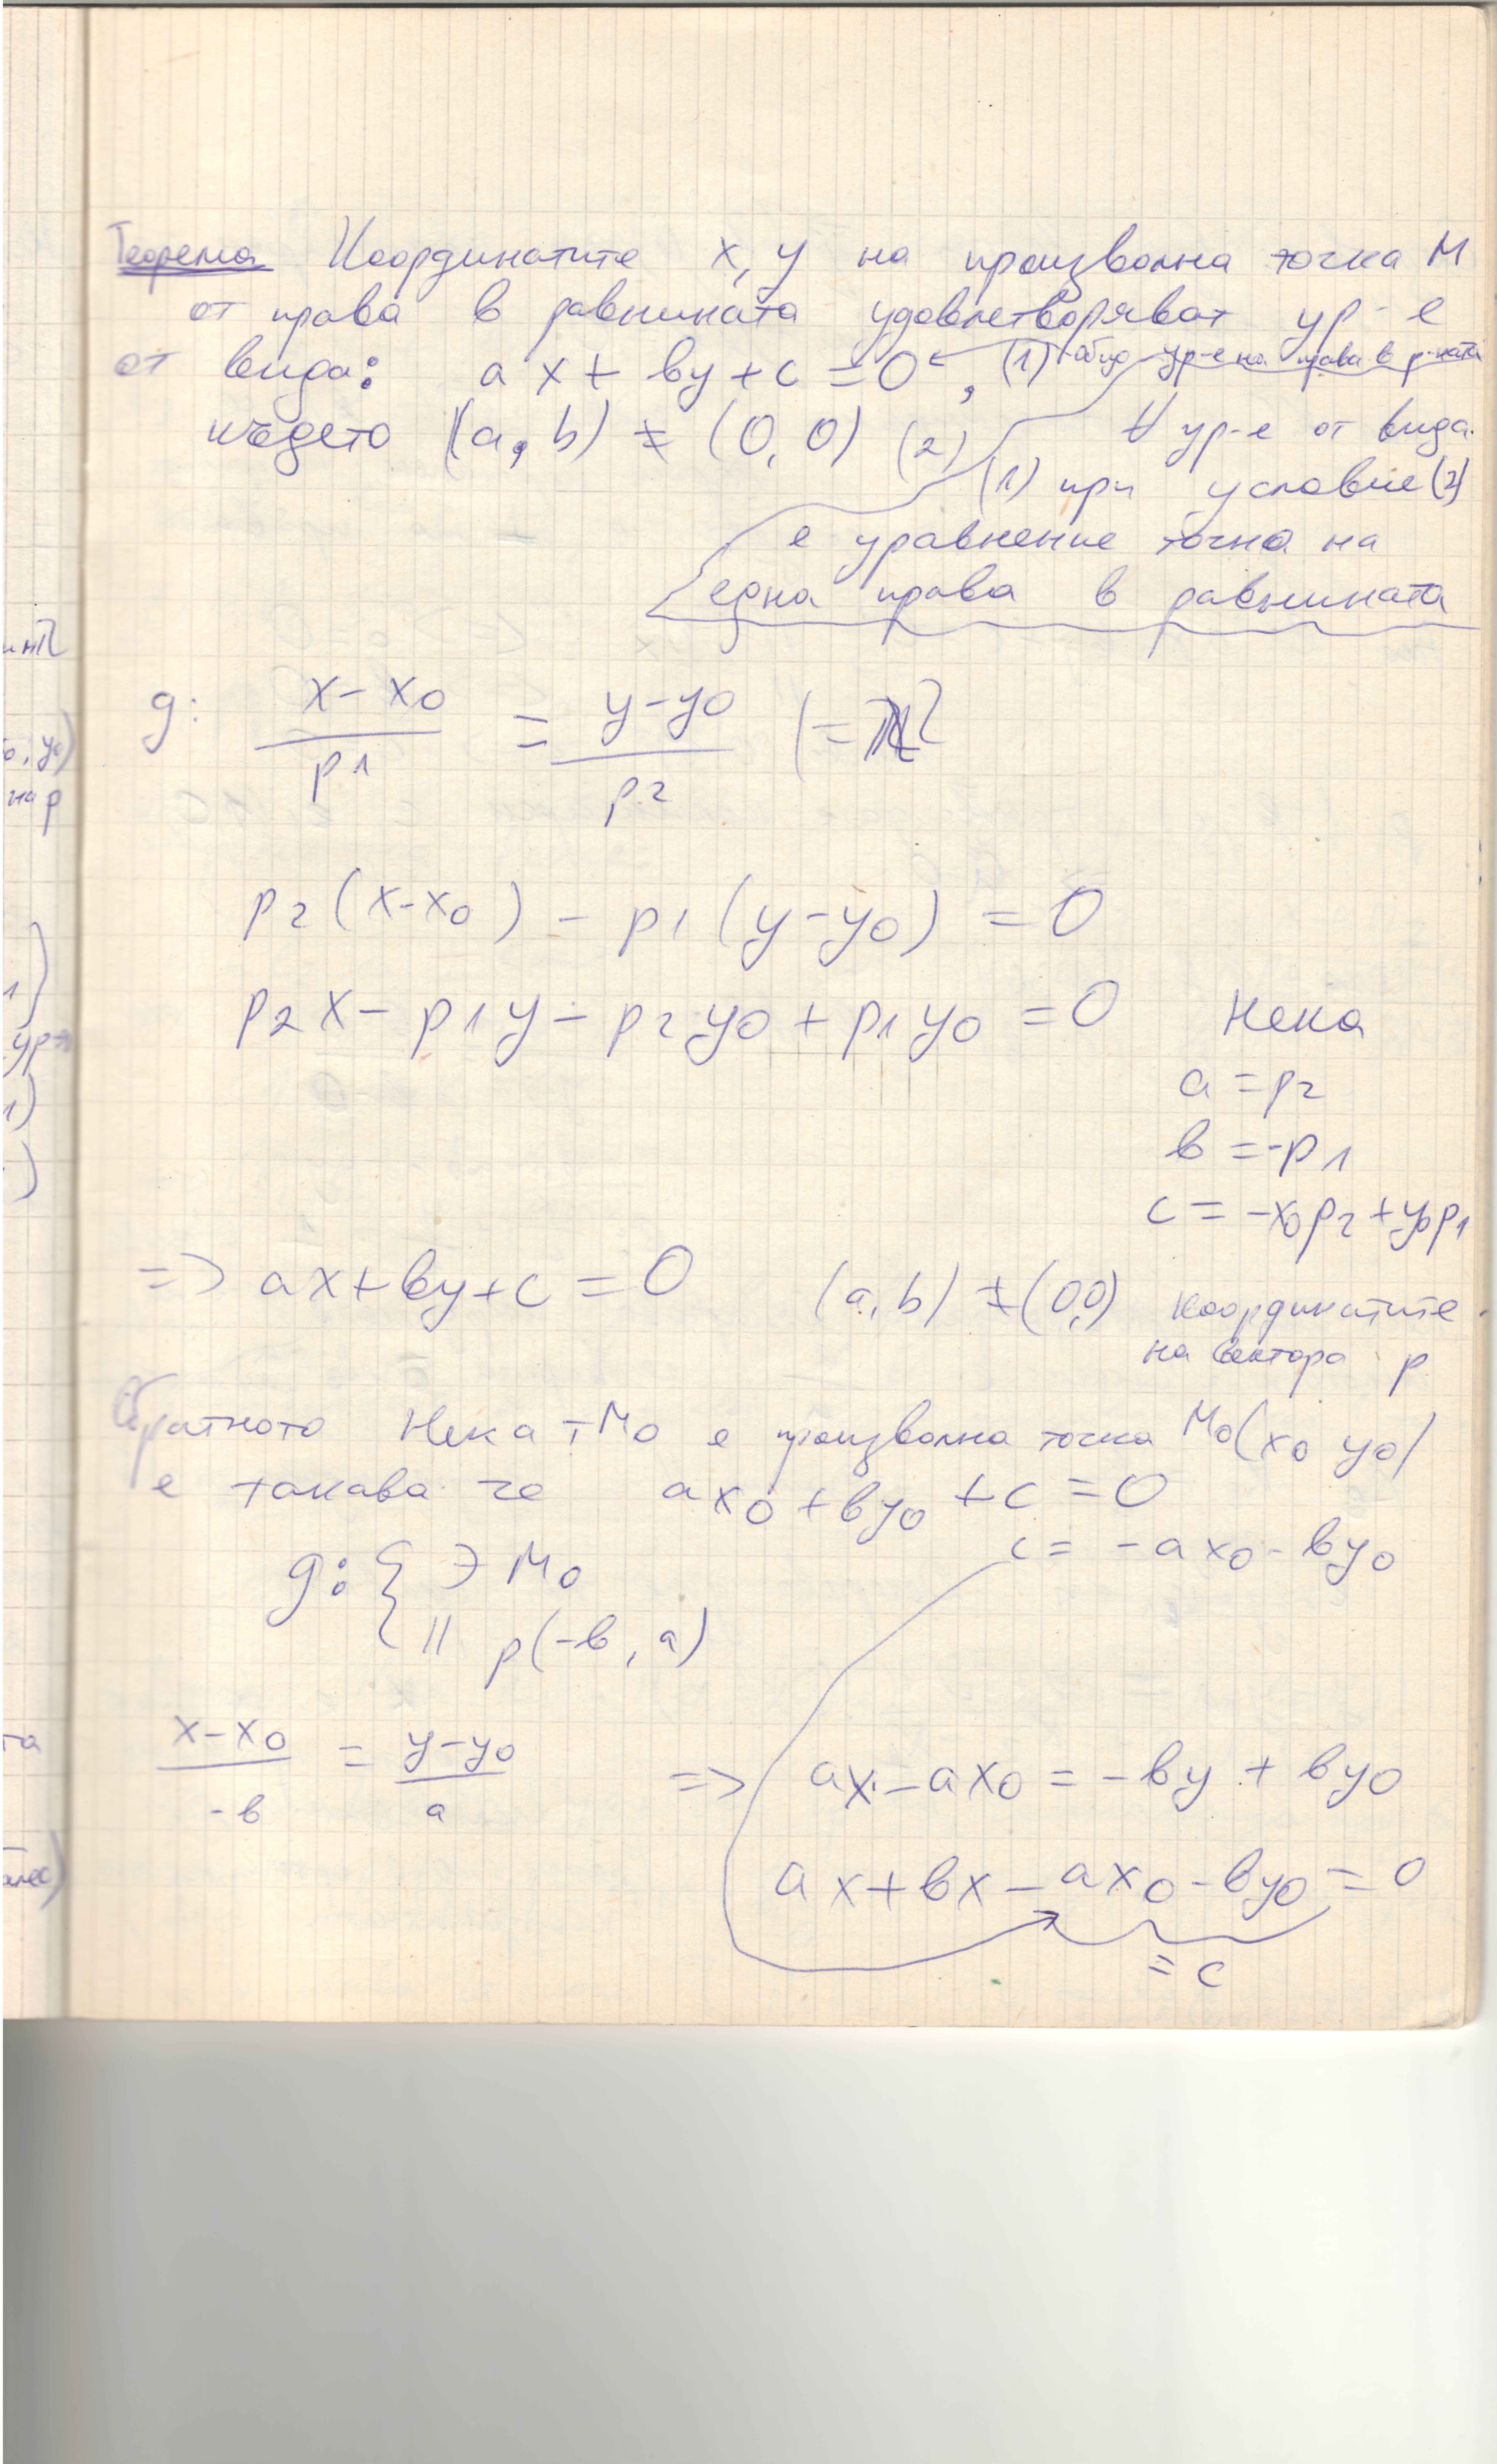 Теорема Координатите x, y на произволна точка M
от права в равнината удовлетворяват ур-е
от вида: ax + by + c = 0, (1) общо ур-е на права в р-ната
където (a, b) ≠ (0, 0) (2)
∀ ур-е от вида
(1) при условие (2)
е уравнение точно на
една права в равнината
g: (x-x0)/p1 = (y-y0)/p2 (=
p2(x-x0) - p1(y-y0) = 0
p2x - p1y - p2y0 + p1y0 = 0 Нека
a = p2
b = -p1
c = -x0p2 + y0p1
=> ax+by+c = 0 (a,b) ≠ (0,0) координатите
на вектора p
Обратното Нека т M0 е произволна точка M0(x0 y0)
е такава че ax0 + by0 + c = 0
c = -ax0 - by0
g: { ∋ M0
|| p(-b, a)
(x-x0)/-b = (y-y0)/a => ax - ax0 = -by + by0
ax + bx - ax0 - by0 = 0
= c
инп
0, y0)
на p
1)
ур-
1)
)
та